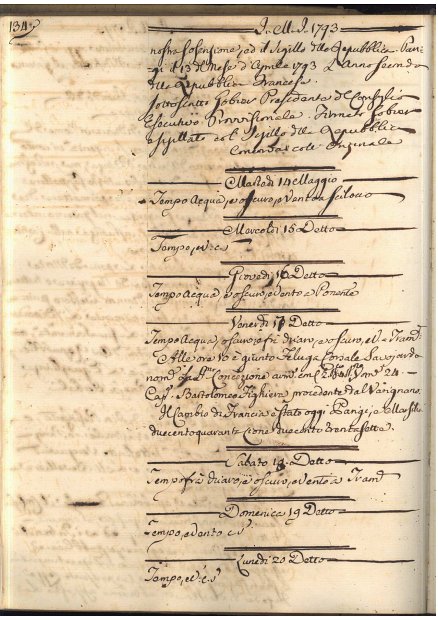 134
J. M. J. 1793
nostra sosensione, ed il Sigillo della Repubblica. Pari-
gi il 13 del Mese d'Aprile 1793 L'Anno secondo
della Repubblica Francese.
sottoscritto Presidente del Consiglio
Esecutivo Provisionale. Firmato
e sigillato col Sigillo della Repubblica
Concorda coll'Originale
Martedi 14 Maggio
Tempo Acqua, e oscuro, e vento a Scilocco
Mercoledi 15 Detto
Tempo, e v: c s
Giovedi 16 Detto
Tempo Acqua e oscuro, e vento a Ponente
Venerdi 17 Detto
Tempo Acqua, oscuro, frà chiaro, e oscuro, e V. a Tramª
Alle ore è giunto Feluga Corsale Savojardo
nomª Concezione 24
Capª Bartolomeo Fighiera procedente dal Varignano
Il Cambio di Francia è stato oggi Parigi, e Marsilia
duecentoquaranta, Lione duecento trentasette.
Sabato 18 Detto
Tempo frà chiaro, e oscuro, e Vento a Tramª
Domenica 19 Detto
Tempo, e Vento c. s.
Lunedi 20 Detto
Tempo, e V: c. s.